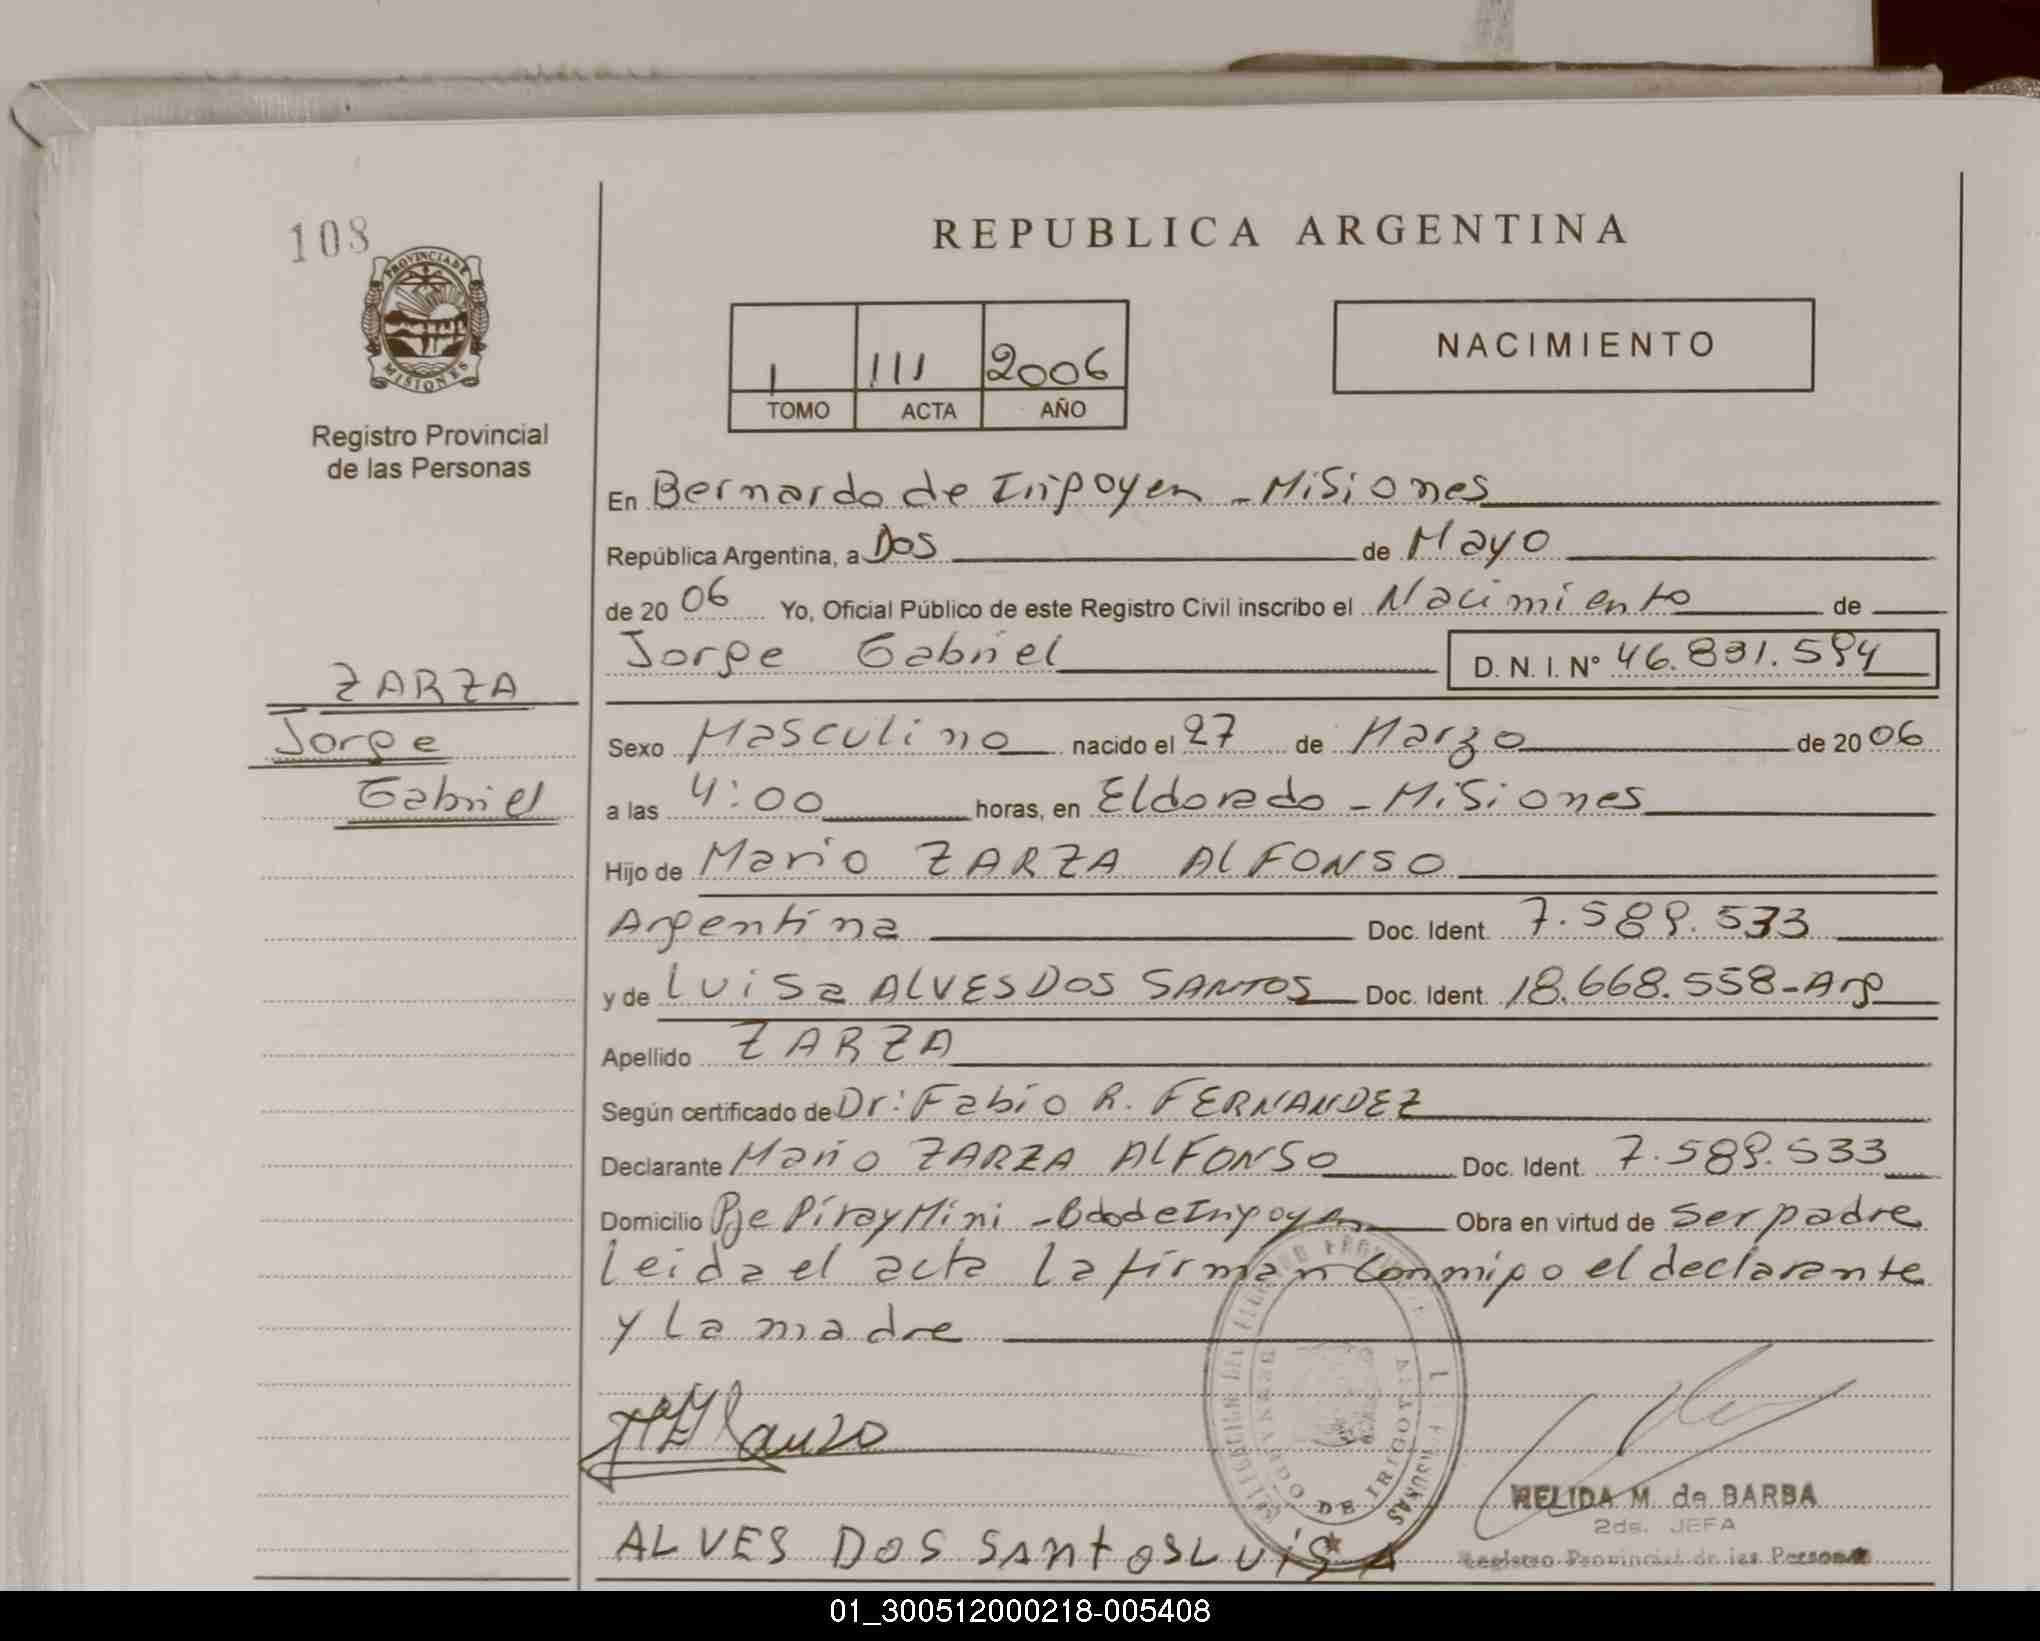 108
PROVINCIA DE
MISIONES
Registro Provincial
de las Personas
REPUBLICA ARGENTINA
1 111 2006
TOMO ACTA AÑO
NACIMIENTO
En Bernardo de Irigoyen - Misiones
República Argentina, a Dos de Mayo
de 20 06 Yo, Oficial Público de este Registro Civil inscribo el Nacimiento de
Jorge Gabriel D. N. I. N° 46.831.594
ZARZA
Jorge
Gabriel
Sexo Masculino nacido el 27 de Marzo de 20 06
a las 4:00 horas, en Eldorado - Misiones
Hijo de Mario ZARZA ALFONSO
Argentina Doc. Ident. 7.589.533
y de Luisa ALVES DOS SANTOS Doc. Ident. 18.668.558-Arg
Apellido ZARZA
Según certificado de Dr: Fabio R. FERNANDEZ
Declarante Mario ZARZA ALFONSO Doc. Ident. 7.589.533
Domicilio Pje Piray Mini - Bdo de Irigoyen Obra en virtud de ser padre
Leida el acta la firman conmigo el declarante
y la madre
DE IRIGOY
NELIDA M. de BARBA
2da. JEFA
Registro Provincial de las Personas
ALVES DOS SANtOS LUiSA
01_300512000218-005408